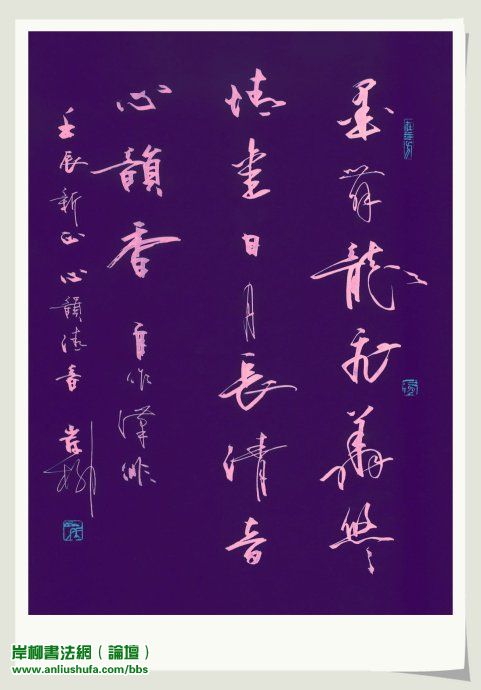 墨龍飛舞悠々
情日月長清音
心韻香 自作漢俳
壬辰新正心韻清音 岸柳
岸柳書法網（論壇）
www.anliushufa.com/bbs